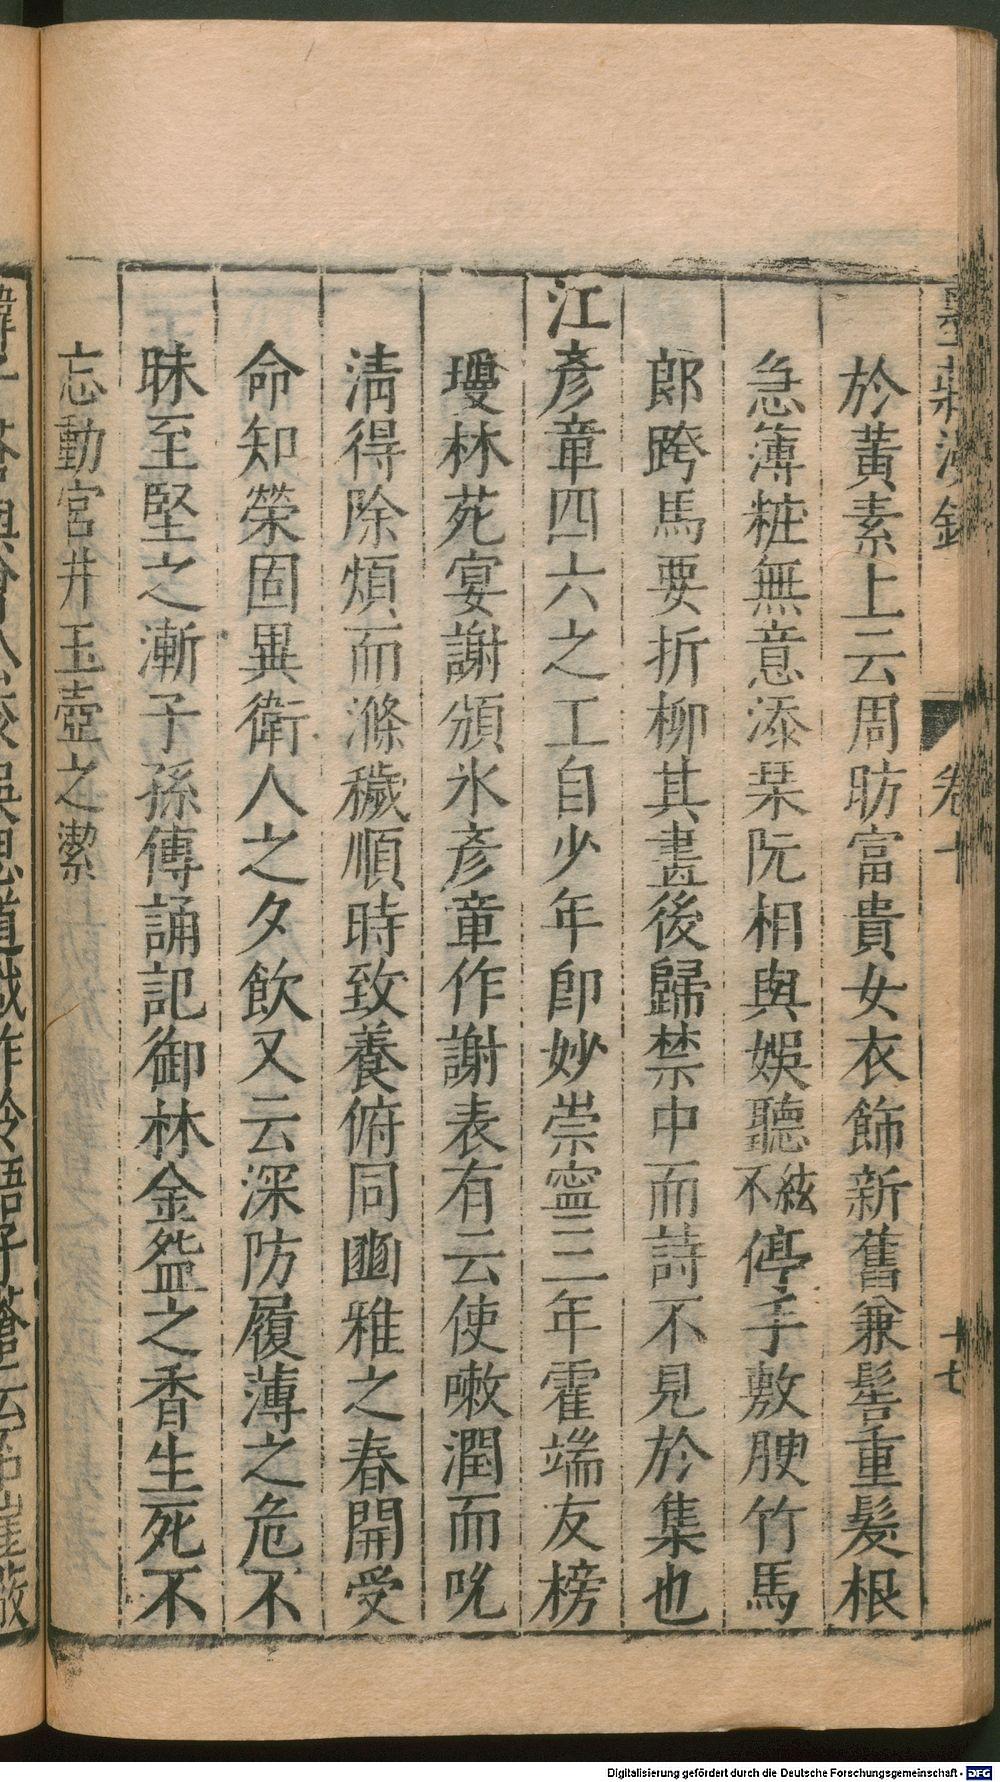 墨莊漫錄 卷十 十七
於黃素上云周昉富貴女衣飾新舊兼髻重髮根
急簿粧無意添栞阮相與娛聽不絃停手敷腴竹馬
郎跨馬要折柳其畫後歸禁中而詩不見於集也
江彥章四六之工自少年卽妙崇寧三年霍端友榜
瓊林苑宴謝頒氷彥章作謝表有云使嗽潤而吮
淸得除煩而滌穢順時致養俯同豳雅之春開受
命知榮固異衛人之夕飮又云深防履薄之危不
昧至堅之漸子孫傳誦記御林金盌之香生死不
忘動宮井玉壺之潔
Digitalisierung gefördert durch die Deutsche Forschungsgemeinschaft - DFG